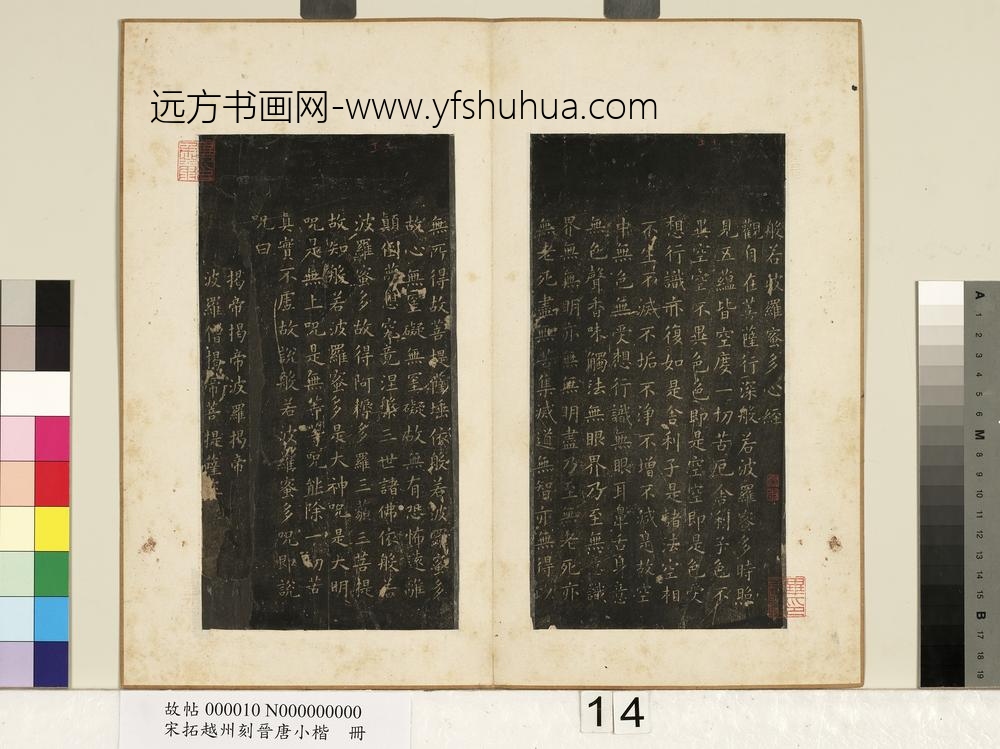 远方书画网-www.yfshuhua.com
般若波羅蜜多心経
觀自在菩薩行深般若波羅蜜多時照
見五蘊皆空度一切苦厄舍利子色不
異空空不異色色即是空空即是色受
想行識亦復如是舍利子是諸法空相
不生不滅不垢不淨不增不減是故空
中無色無受想行識無眼耳鼻舌身意
無色聲香味觸法無眼界乃至無意識
界無無明亦無無明盡乃至無老死亦
無老死盡無苦集滅道無智亦無得以
無所得故菩提薩埵依般若波羅蜜多
故心無罣礙無罣礙故無有恐怖遠離
顛倒夢想究竟涅槃三世諸佛依般若
波羅蜜多故得阿耨多羅三藐三菩提
故知般若波羅蜜多是大神咒是大明
咒是無上咒是無等等咒能除一切苦
真實不虛故說般若波羅蜜多咒即說
咒曰
揭帝揭帝波羅揭帝
波羅僧揭帝菩提薩
故帖 000010 N000000000
宋拓越州刻晉唐小楷 冊
14
A 1 2 3 4 5 6 M 8 9 10 11 12 13 14 15 B 17 18 19